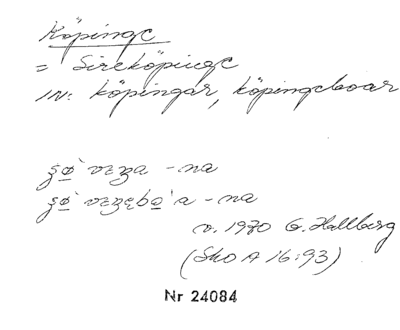 Köpinge
= Sireköpinge
IN: köpingar, köpingeboar
-na
-na
v. 1970 G. Hallberg
(Sko A 16:93)
Nr 24084